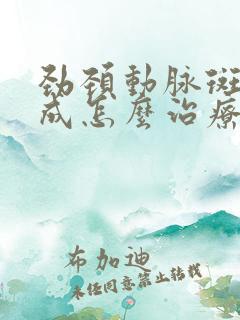 劲頚動脉斑
成怎麽治療
布加迪
未任同意禁止转载